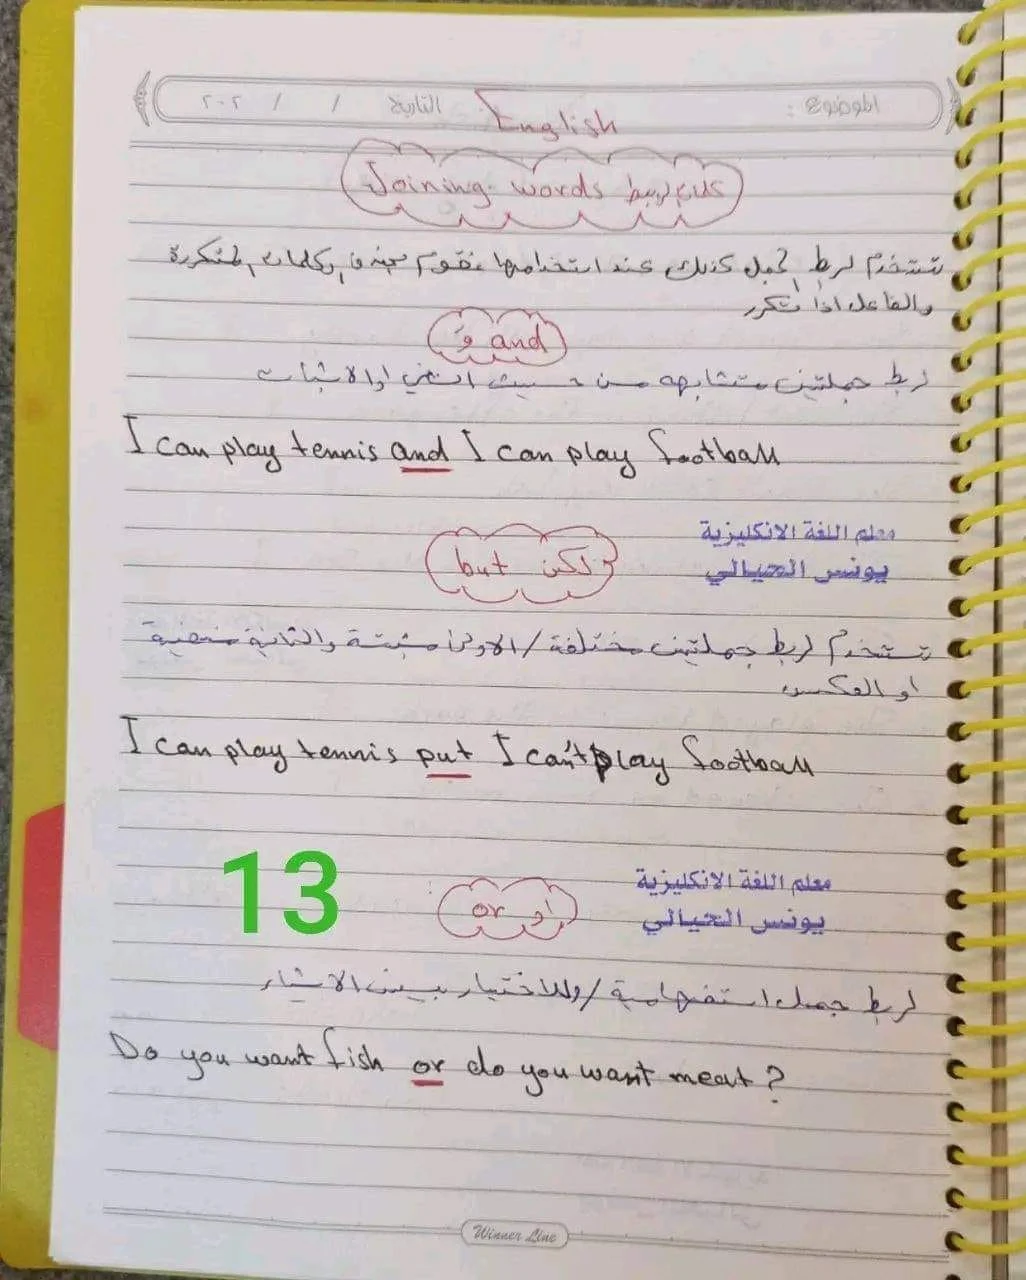 الموضوع : التاريخ / / ٢٠٢
English
Joining words كلمات الربط
تستخدم لربط الجمل كذلك عند استخدامها نقوم بحذف الكلمات المتكررة
والفاعل اذا تكرر
and وَ
لربط جملتين متشابهه من حيث النفي او الاثبات
I can play tennis and I can play football
معلم اللغة الانكليزية
يونس الحيالي
but لكن
تستخدم لربط جملتين مختلفة / الاولى مثبتة والثانية منفية
او العكس
I can play tennis put I can't play football
13
معلم اللغة الانكليزية
يونس الحيالي
or او
لربط جمل استفهامية / وللاختيار بين الاشياء
Do you want fish or do you want meat ?
Winner Line